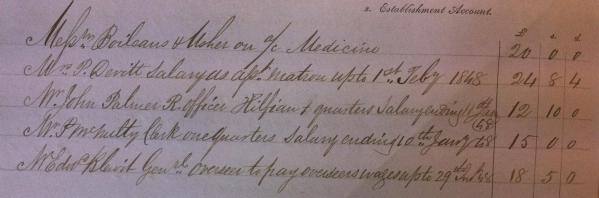 2. Establishment Account.
£ s. d.
Messrs. Boileaus & Usher on a/c Medicine 20 0 0
Mrs. P. Devitt Salary as asst. matron up to 1st Feby 1848 24 8 4
Mr. John Palmer R. officer ¼ quarters Salary ending 11th Jan 12 10 0
48
Mr. P. McNulty Clerk one quarters Salary ending 10th Jany 48 15 0 0
Mr. Edwd. Genrl. Overseer to pay overseers wages up to 29th Jan 48 18 5 0